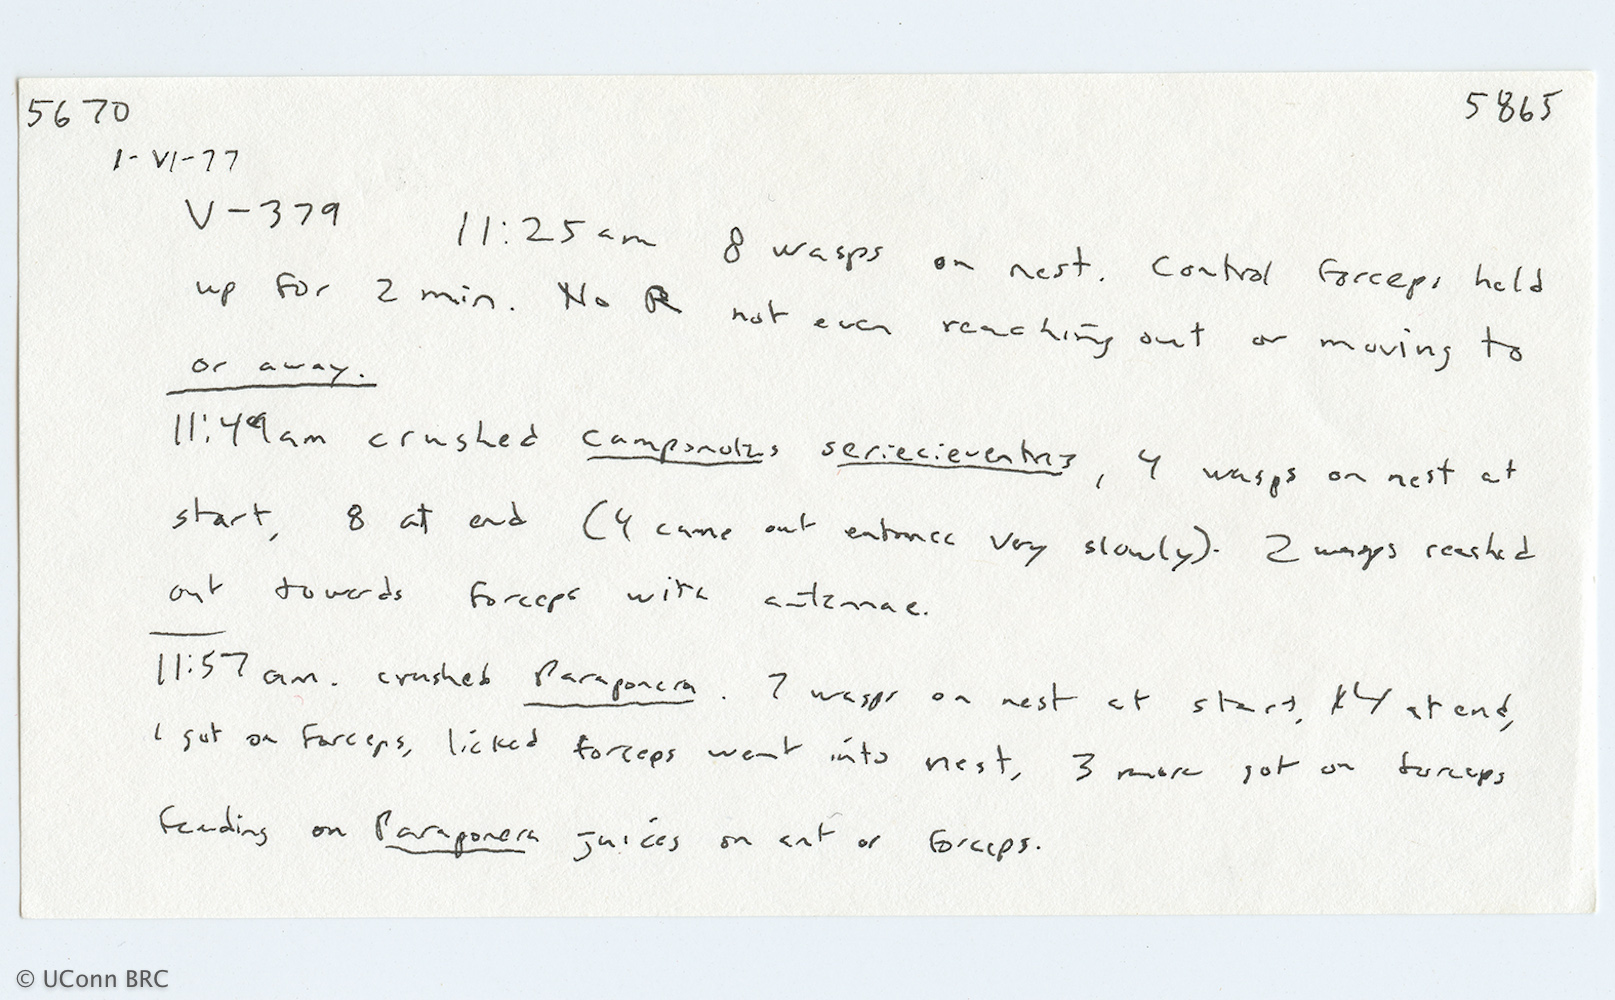 5670 5865
1-VI-77
V-379 11:25am 8 wasps on nest. Control forceps held
up for 2 min. No R not even reaching out or moving to
or away.
11:49am crushed Camponotus seriecieventris, 4 wasps on nest at
start, 8 at end (4 came out entrance very slowly). 2 wasps reached
out towards forceps with antennae.
11:57 am. crushed Paraponera. 7 wasps on nest at start, 14 at end,
1 got on forceps, licked forceps went into nest, 3 more got on forceps
feeding on Paraponera juices on ant or forceps.
© UConn BRC